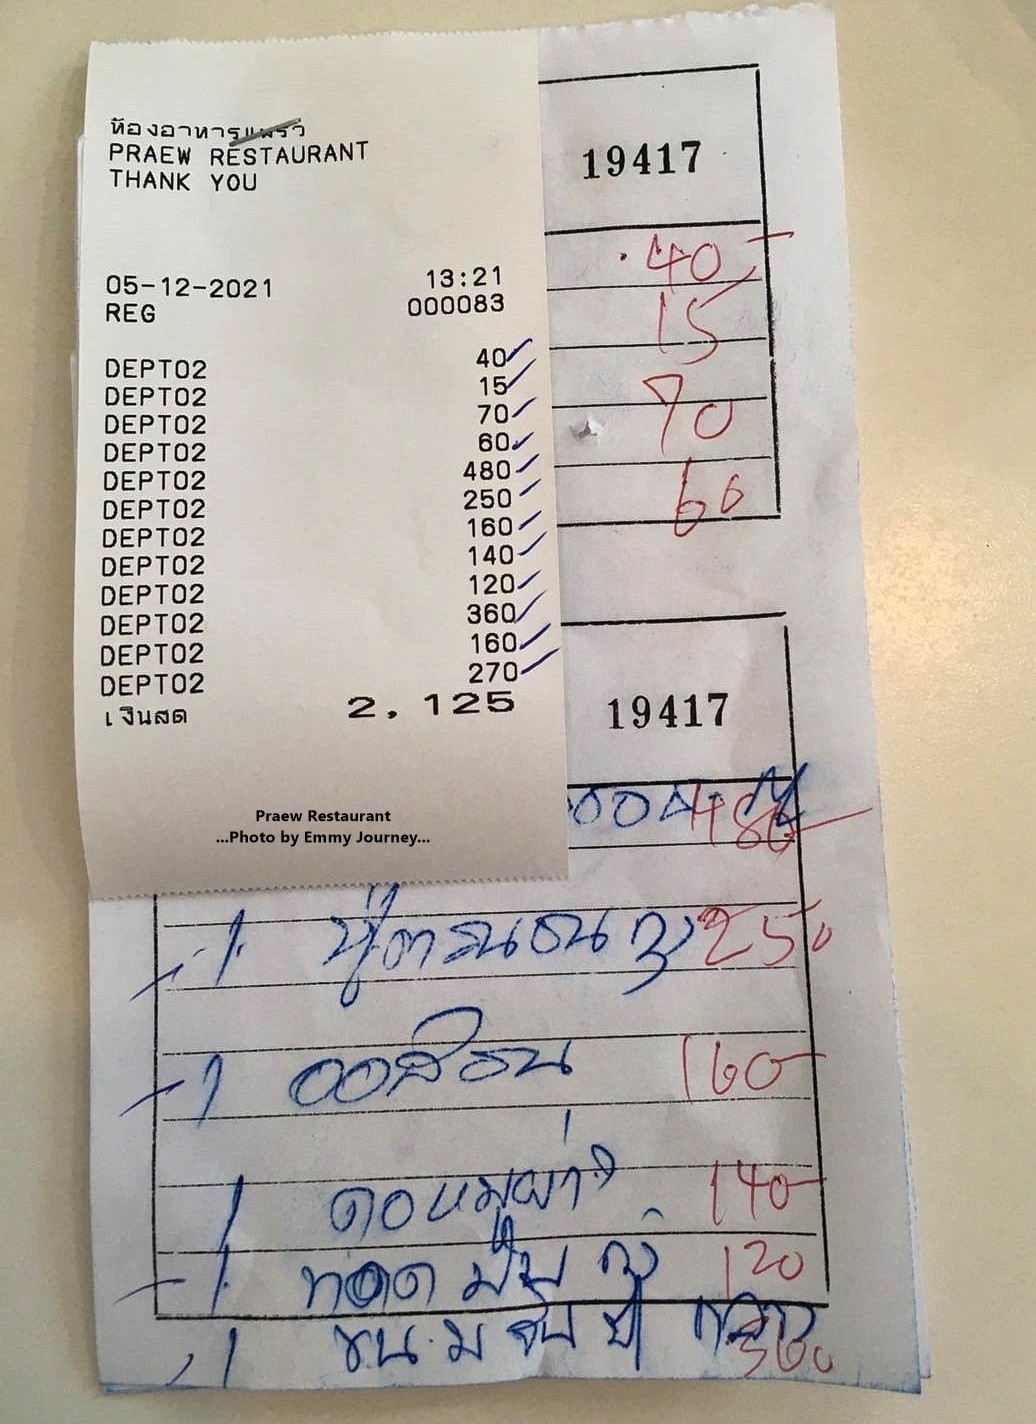 ห้องอาหารแพรว
PRAEW RESTAURANT
THANK YOU
05-12-2021 13:21
REG 000083
DEPT02 40
DEPT02 15
DEPT02 70
DEPT02 60
DEPT02 480
DEPT02 250
DEPT02 160
DEPT02 140
DEPT02 120
DEPT02 360
DEPT02 160
DEPT02 270
เงินสด 2.125
Praew Restaurant
...Photo by Emmy Journey...
19417
40
15
70
60
19417
480
1 250
1 ออส่วน 160
1 140
1 ทอดมันกุ้ง 120
1 ขนมจีน 360